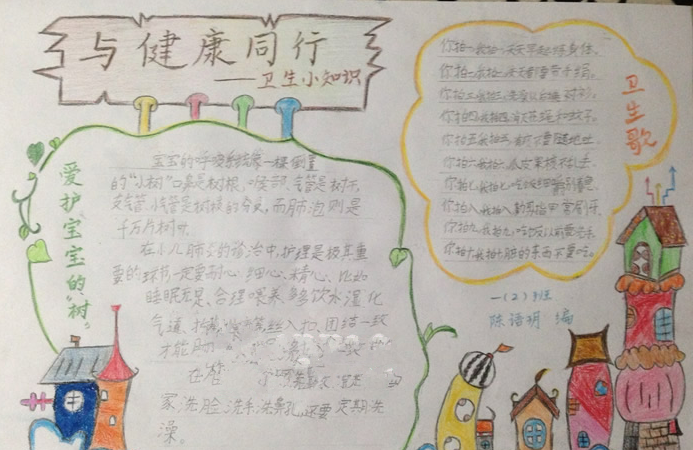 与健康同行
——卫生小知识
爱护宝宝的“树”
宝宝的呼吸系统像一棵倒置
的“小树”口鼻是树根,喉部、气管是树干,
支气管、小气管是树枝的分叉,而肺泡则是
千万片树叶。
在小儿肺炎的诊治中,护理是极其重
要的环节一定要耐心、细心、精心、比如
睡眠充足、合理喂养、多饮水湿化
气道、拍背、丝丝入扣、团结一致
才能
家洗脸、洗手、洗鼻孔,还要定期洗
澡。
卫生歌
你拍一我拍一天天早起练身体,
你拍二我拍二天天都要带手绢,
你拍三我拍三洗澡以后换衬衫,
你拍四我拍四消灭苍蝇和蚊子,
你拍五我拍五有痰不要随地吐,
你拍六我拍六瓜皮果核不乱丢,
你拍七我拍七吃饭细嚼别着急,
你拍八我拍八勤剪指甲常刷牙,
你拍九我拍九吃饭以前要洗手,
你拍十我拍十脏的东西不要吃。
一(2)班
陈语玥 编